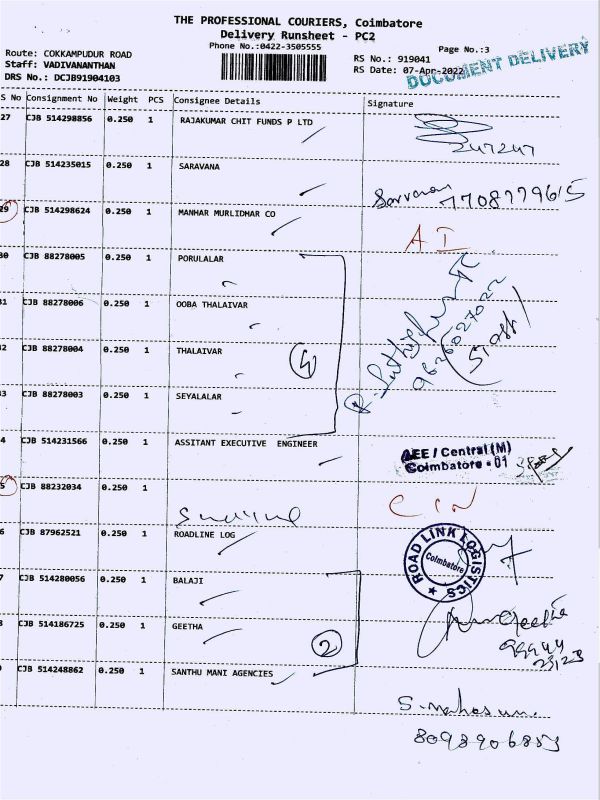 THE PROFESSIONAL COURIERS, Coimbatore
Delivery Runsheet - PC2
Phone No.:0422-3505555
Page No.:3
Route: COKKAMPUDUR ROAD
Staff: VADIVANANTHAN
DRS No.: DCJB91904103
RS No.: 919041
RS Date: 07-Apr-2022
DOCUMENT DELIVERY
S No Consignment No Weight PCS Consignee Details Signature
27 CJB 514298856 0.250 1 RAJAKUMAR CHIT FUNDS P LTD
247247
28 CJB 514235015 0.250 1 SARAVANA
Sarvanan 7708779615
29 CJB 514298624 0.250 1 MANHAR MURLIDHAR CO
A I
30 CJB 88278005 0.250 1 PORULALAR
31 CJB 88278006 0.250 1 OOBA THALAIVAR
32 CJB 88278004 0.250 1 THALAIVAR
4
33 CJB 88278003 0.250 1 SEYALALAR
4 CJB 514231566 0.250 1 ASSITANT EXECUTIVE ENGINEER
AEE / Central (M)
Coimbatore - 01
5 CJB 88232034 0.250 1
C I N
6 CJB 87962521 0.250 1 ROADLINE LOG
ROAD LINK LOGISTICS
Coimbatore
7 CJB 514280056 0.250 1 BALAJI
8 CJB 514186725 0.250 1 GEETHA
2
Geetha
99944
23123
CJB 514248862 0.250 1 SANTHU MANI AGENCIES
8098906853